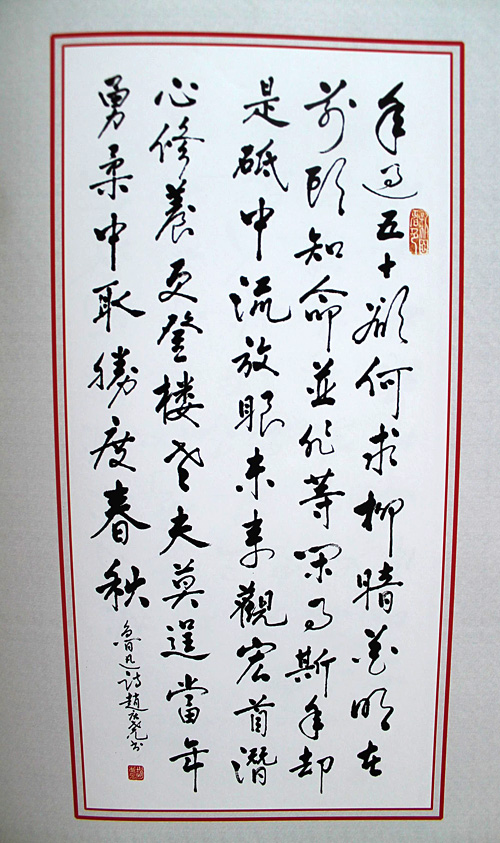 年过五十欲何求柳暗花明在
前頭知命並非等闲事斯年却
是砥中流放眼未来觀宏首潜
心修養更登楼老夫莫逞當年
勇柔中取勝度春秋
诗趙书